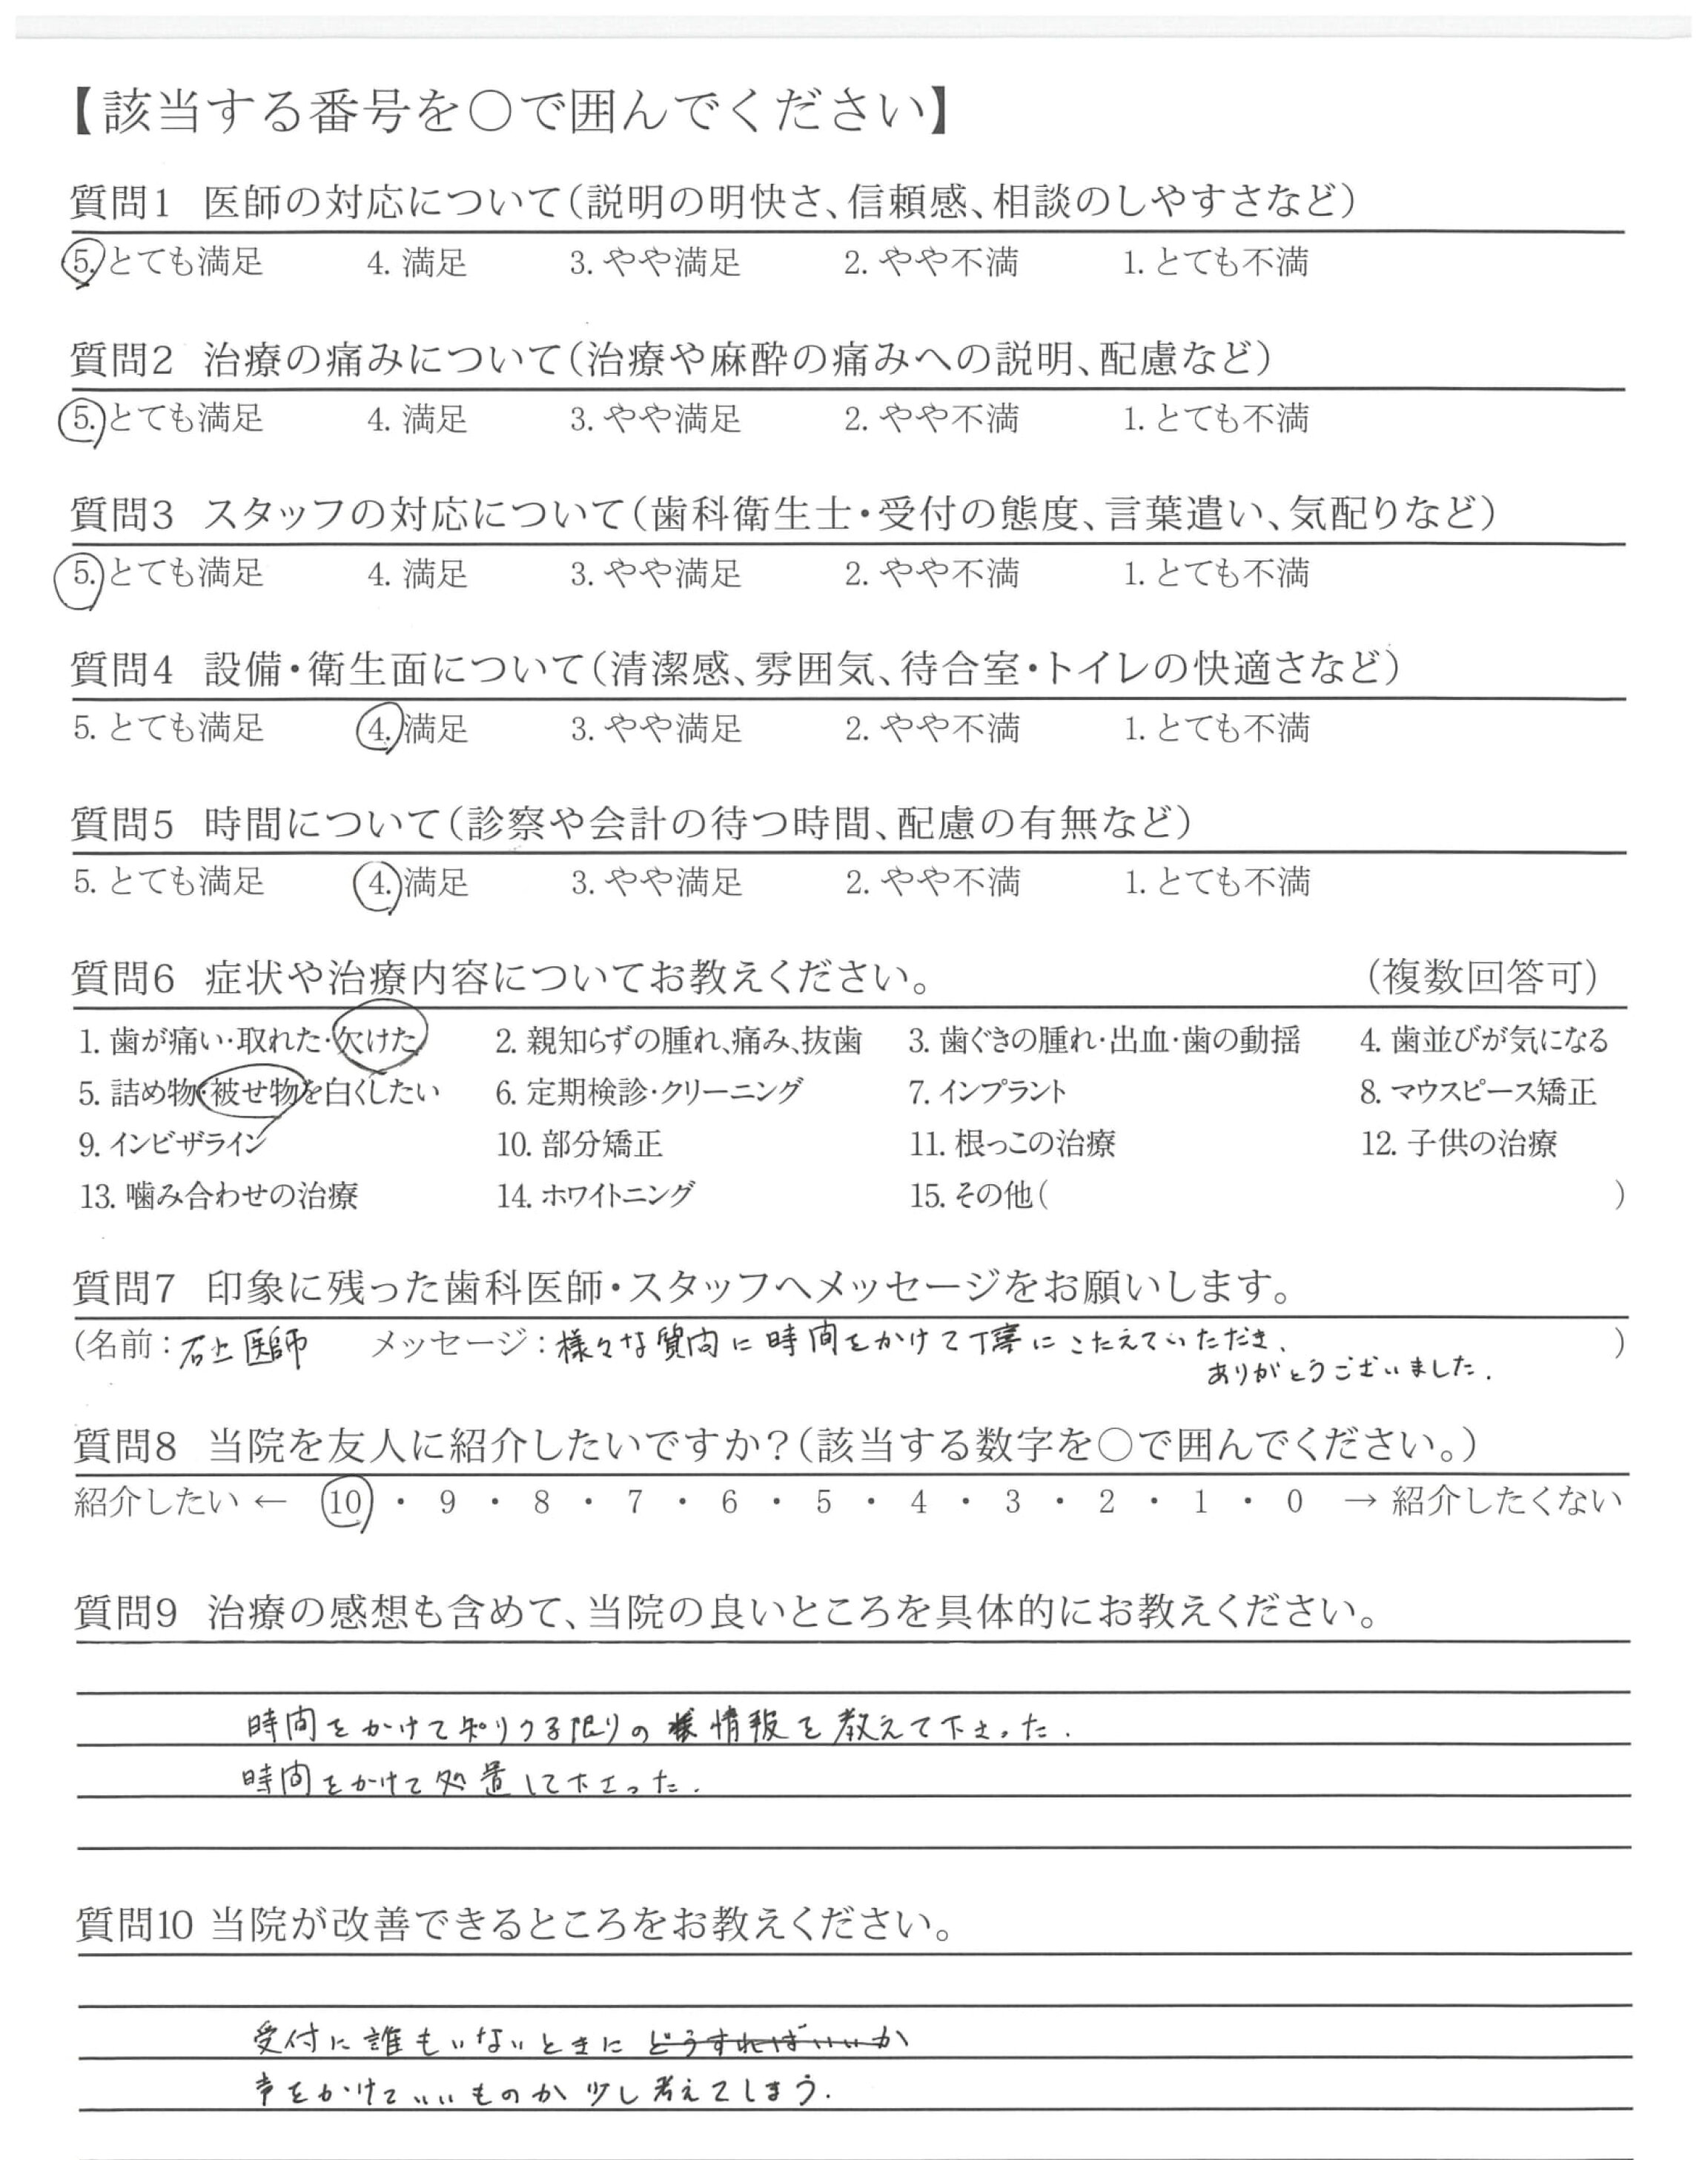 【該当する番号を○で囲んでください】
質問1 医師の対応について(説明の明快さ、信頼感、相談のしやすさなど)
5. とても満足 4. 満足 3. やや満足 2. やや不満 1. とても不満
質問2 治療の痛みについて(治療や麻酔の痛みへの説明、配慮など)
5. とても満足 4. 満足 3. やや満足 2. やや不満 1. とても不満
質問3 スタッフの対応について(歯科衛生士・受付の態度、言葉遣い、気配りなど)
5. とても満足 4. 満足 3. やや満足 2. やや不満 1. とても不満
質問4 設備・衛生面について(清潔感、雰囲気、待合室・トイレの快適さなど)
5. とても満足 4. 満足 3. やや満足 2. やや不満 1. とても不満
質問5 時間について(診察や会計の待つ時間、配慮の有無など)
5. とても満足 4. 満足 3. やや満足 2. やや不満 1. とても不満
質問6 症状や治療内容についてお教えください。 (複数回答可)
1. 歯が痛い・取れた・欠けた 2. 親知らずの腫れ、痛み、抜歯 3. 歯ぐきの腫れ・出血・歯の動揺 4. 歯並びが気になる
5. 詰め物・被せ物を白くしたい 6. 定期検診・クリーニング 7. インプラント 8. マウスピース矯正
9. インビザライン 10. 部分矯正 11. 根っこの治療 12. 子供の治療
13. 噛み合わせの治療 14. ホワイトニング 15. その他( )
質問7 印象に残った歯科医師・スタッフへメッセージをお願いします。
(名前:石上医師 メッセージ:様々な質問に時間をかけて丁寧にこたえていただき、 )
ありがとうございました.
質問8 当院を友人に紹介したいですか?(該当する数字を○で囲んでください。)
紹介したい ← 10 ・ 9 ・ 8 ・ 7 ・ 6 ・ 5 ・ 4 ・ 3 ・ 2 ・ 1 ・ 0 → 紹介したくない
質問9 治療の感想も含めて、当院の良いところを具体的にお教えください。
時間をかけて知りうる限りの情報を教えて下さった.
時間をかけて処置して下さった.
質問10 当院が改善できるところをお教えください。
受付に誰もいないときに どうすればいいか
声をかけていいものか少し考えてしまう.